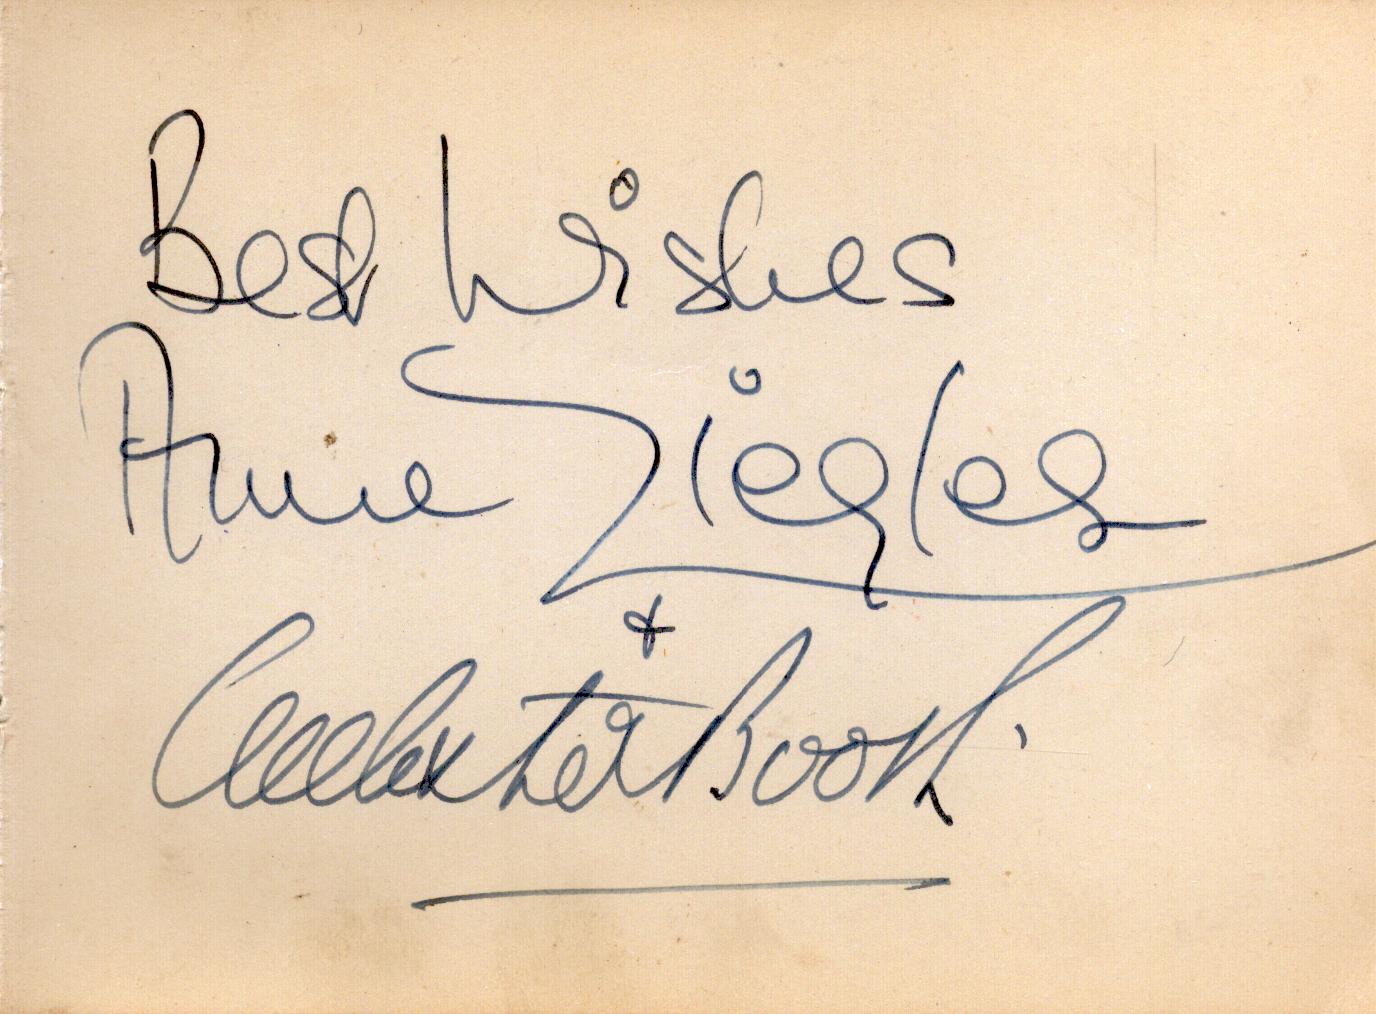 Best Wishes
Anne Ziegler
+
Webster Booth